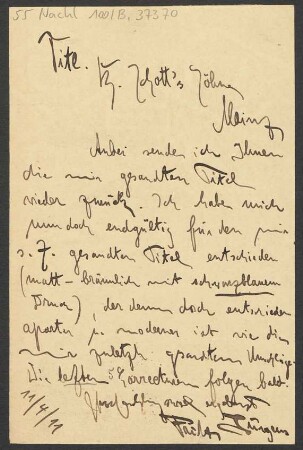 55 Nachl 100/B, 37370
Titl.
B. Schott's Söhne
Mainz
Anbei sende ich Ihnen
die mir gesandten Titel
wieder zurück. Ich habe mich
nun doch endgültig für den mir
z. Z. gesandten Titel entschieden
(matt-bräunlich mit schwarzblauem
Druck), der denn doch entschieden
aparter u. moderner ist wie die
mir zuletzt gesandten
Die letzten Correcturen folgen bald.
Hochachtungsvoll ergebenst
11/4/11